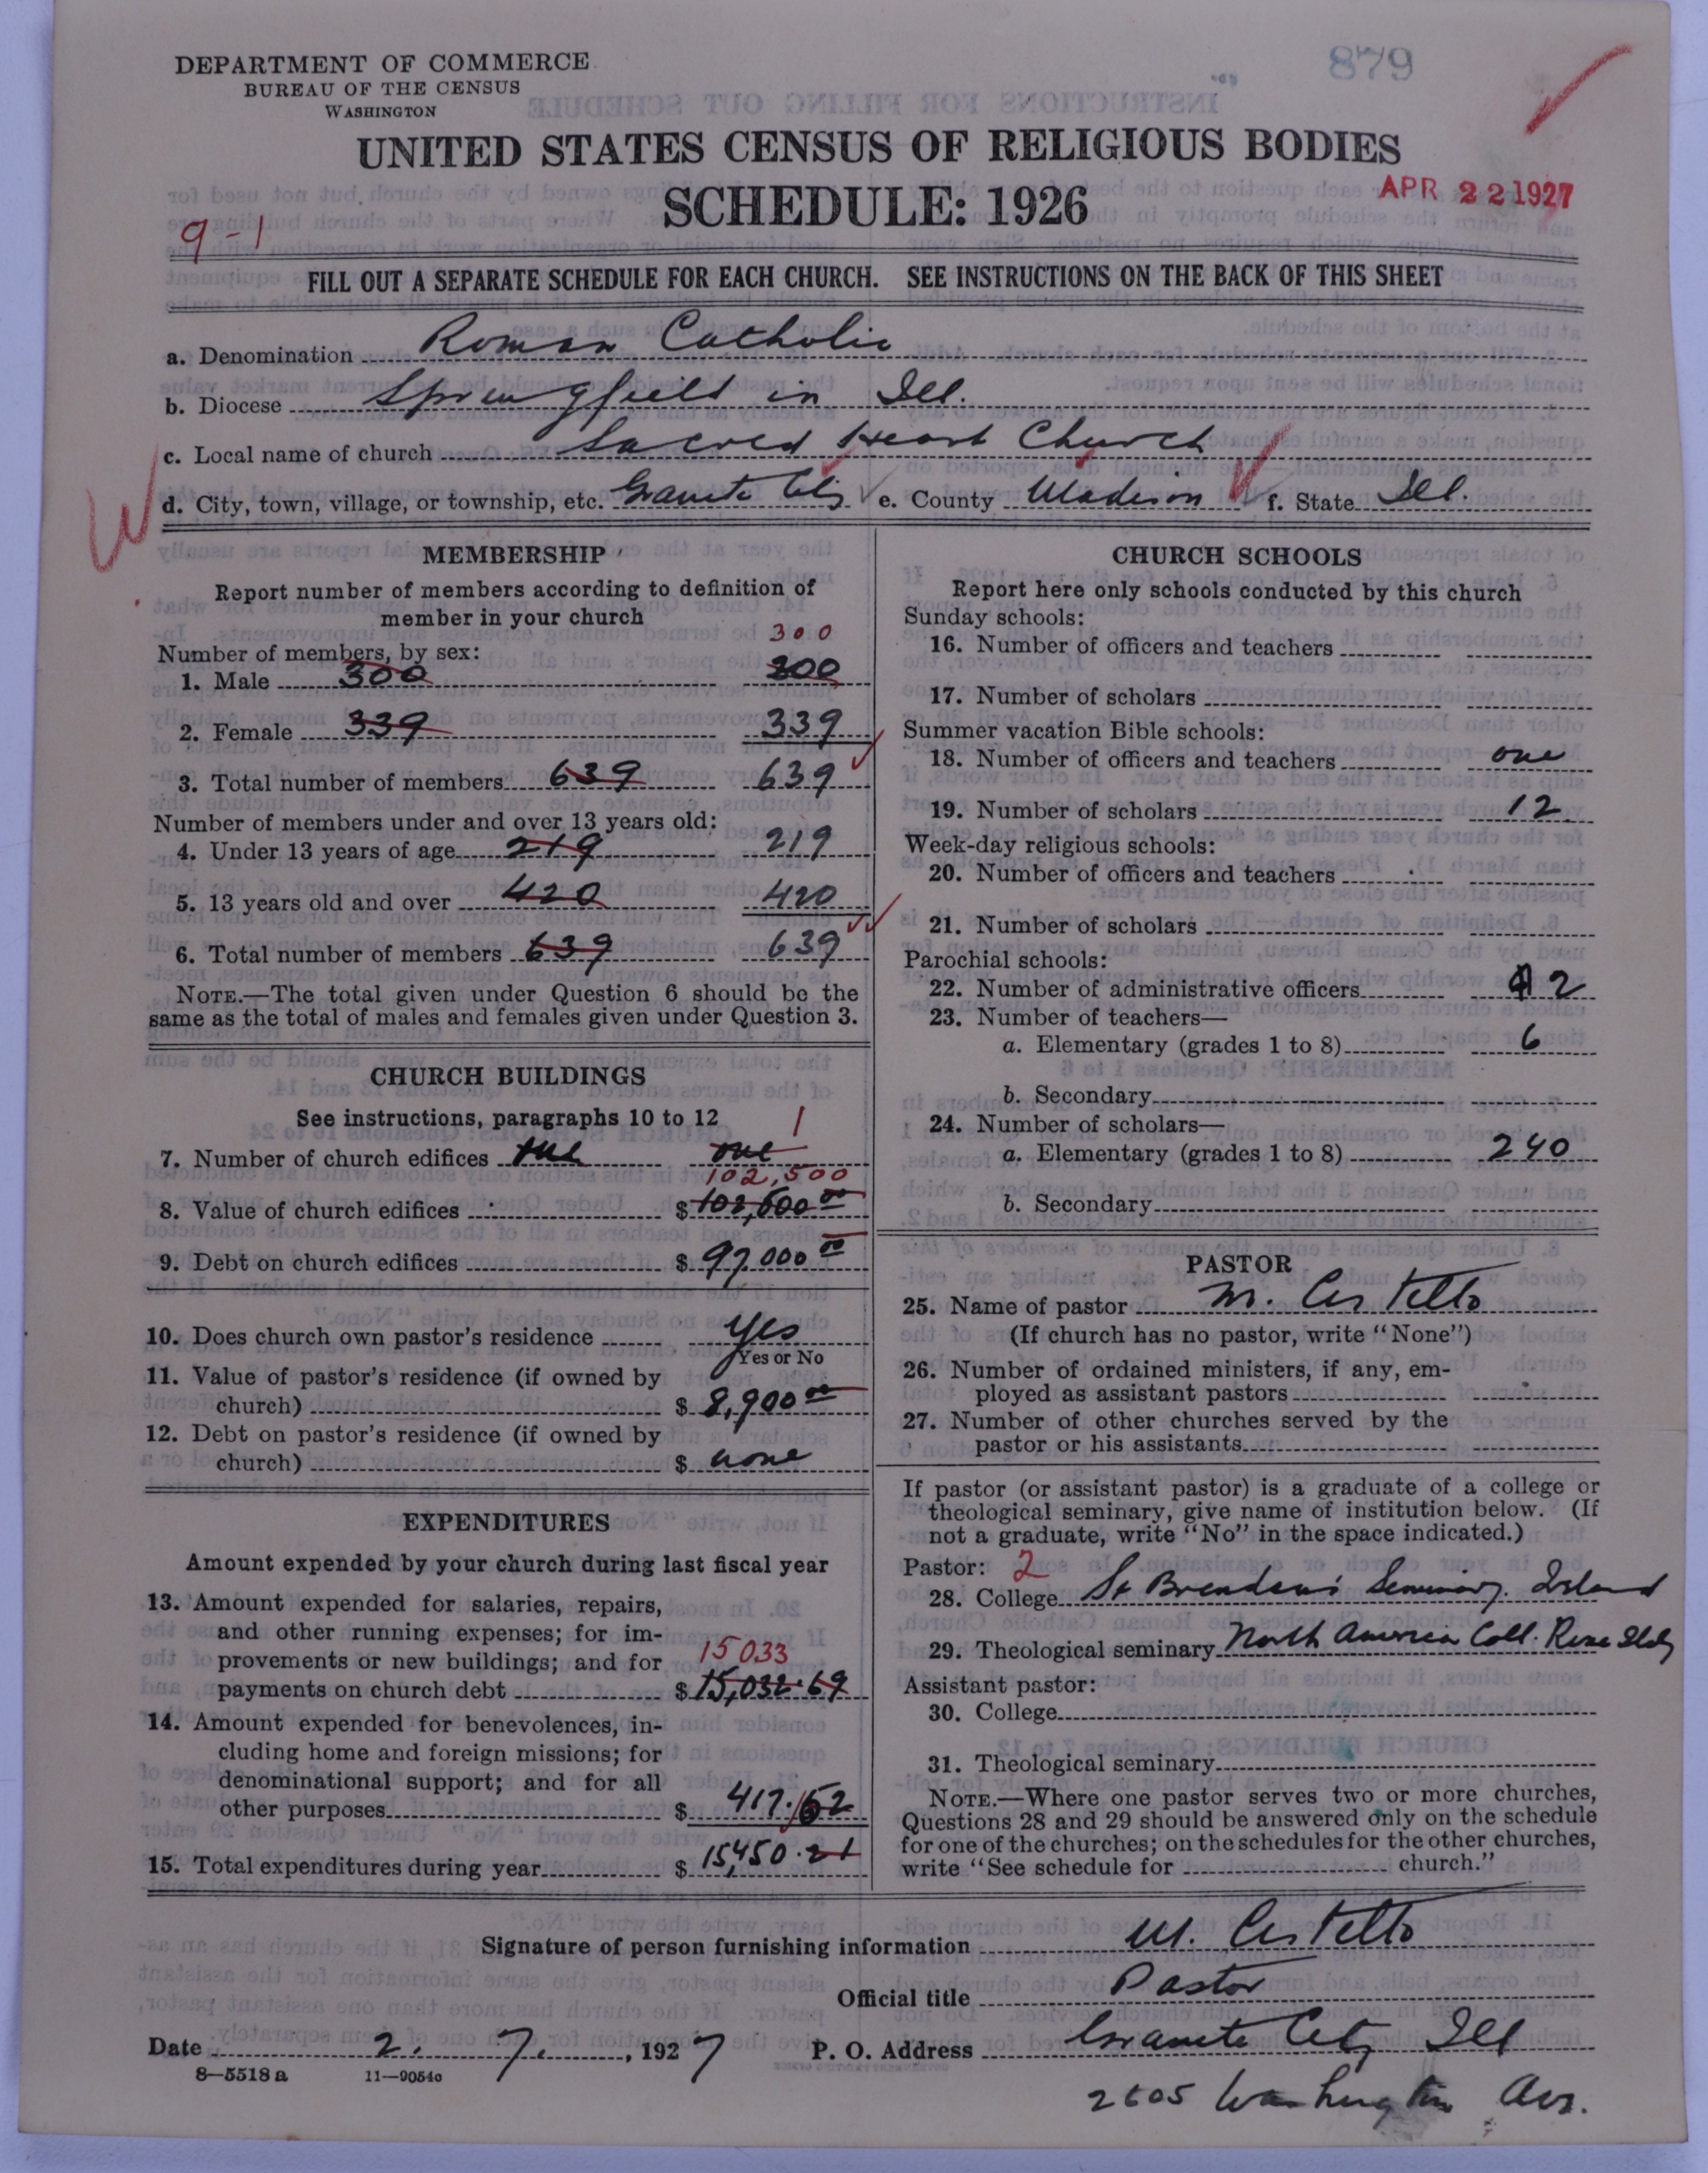 879
DEPARTMENT OF COMMERCE
BUREAU OF THE CENSUS
WASHINGTON
UNITED STATES CENSUS OF RELIGIOUS BODIES
SCHEDULE: 1926
APR 22 1927
9-1
FILL OUT A SEPARATE SCHEDULE FOR EACH CHURCH. SEE INSTRUCTIONS ON THE BACK OF THIS SHEET
a. Denomination Roman Catholic
b. Diocese Springfield in Ill.
c. Local name of church Sacred Heart Church
d. City, town, village, or township, etc. Granite City e. County Madison f. State Ill.
MEMBERSHIP
Report number of members according to definition of
member in your church
300
Number of members, by sex:
1. Male 300 300
2. Female 339 339
3. Total number of members 639 639
Number of members under and over 13 years old:
4. Under 13 years of age 219 219
5. 13 years old and over 420 420
6. Total number of members 639 639
NOTE.—The total given under Question 6 should be the
same as the total of males and females given under Question 3.
CHURCH BUILDINGS
See instructions, paragraphs 10 to 12
1
7. Number of church edifices one one
102,500
8. Value of church edifices $
9. Debt on church edifices $ 97,000 00
10. Does church own pastor's residence yes
Yes or No
11. Value of pastor's residence (if owned by
church) $ 8,900 00
12. Debt on pastor's residence (if owned by
church) $ none
EXPENDITURES
Amount expended by your church during last fiscal year
13. Amount expended for salaries, repairs,
and other running expenses; for im-
provements or new buildings; and for 15033
payments on church debt $ 15,032.69
14. Amount expended for benevolences, in-
cluding home and foreign missions; for
denominational support; and for all
other purposes $ 417.52
15. Total expenditures during year $ 15,450.21
CHURCH SCHOOLS
Report here only schools conducted by this church
Sunday schools:
16. Number of officers and teachers
17. Number of scholars
Summer vacation Bible schools:
18. Number of officers and teachers one
19. Number of scholars 12
Week-day religious schools:
20. Number of officers and teachers
21. Number of scholars
Parochial schools:
22. Number of administrative officers 2
23. Number of teachers—
a. Elementary (grades 1 to 8) 6
b. Secondary
24. Number of scholars—
a. Elementary (grades 1 to 8) 240
b. Secondary
PASTOR
25. Name of pastor M. Costello
(If church has no pastor, write "None")
26. Number of ordained ministers, if any, em-
ployed as assistant pastors
27. Number of other churches served by the
pastor or his assistants
If pastor (or assistant pastor) is a graduate of a college or
theological seminary, give name of institution below. (If
not a graduate, write "No" in the space indicated.)
Pastor: 2
28. College St Brendan's Seminary
29. Theological seminary North America Coll. Rome Italy
Assistant pastor:
30. College
31. Theological seminary
NOTE.—Where one pastor serves two or more churches,
Questions 28 and 29 should be answered only on the schedule
for one of the churches; on the schedules for the other churches,
write "See schedule for church."
Signature of person furnishing information M. Costello
Official title Pastor
Date 2. 7. , 1927 P. O. Address Granite City Ill
8—5518 a 11—9054c
2605 Washington Ave.